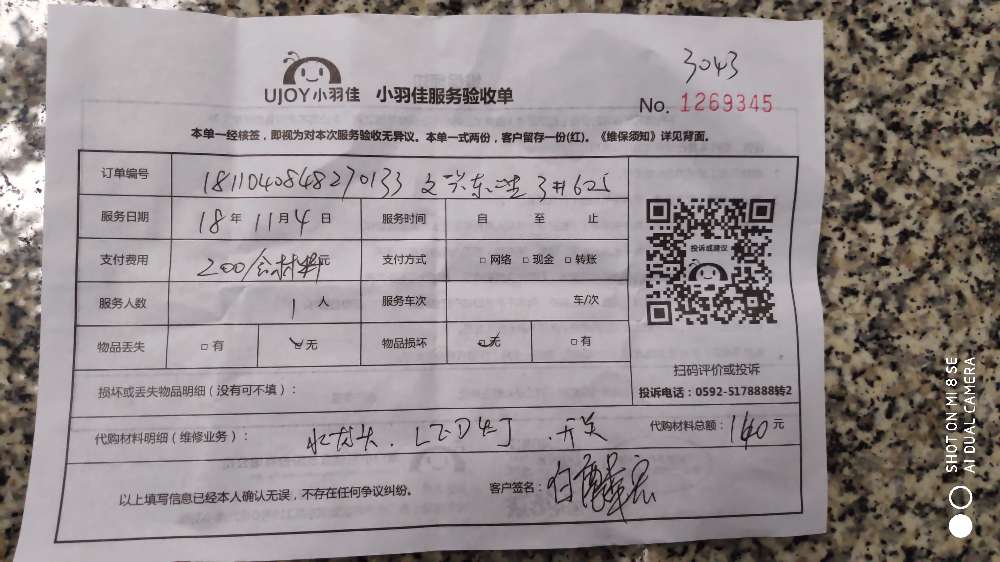 3043
UJOY小羽佳 小羽佳服务验收单
No. 1269345
本单一经核签，即视为对本次服务验收无异议。本单一式两份，客户留存一份(红)。《维保须知》详见背面。
订单编号 1811040848270133 3#605
服务日期 18年11月4日 服务时间 自 至 止
支付费用 200/含材料元 支付方式 □网络 □现金 □转账
服务人数 1人 服务车次 车/次
物品丢失 □有 ☑无 物品损坏 ☑无 □有
投诉或建议
扫码评价或投诉
投诉电话：0592-5178888转2
损坏或丢失物品明细（没有可不填）：
代购材料明细（维修业务）： 水龙头、LED灯、开关 代购材料总额：140元
以上填写信息已经本人确认无误，不存在任何争议纠纷。 客户签名：
SHOT ON MI 8 SE
AI DUAL CAMERA